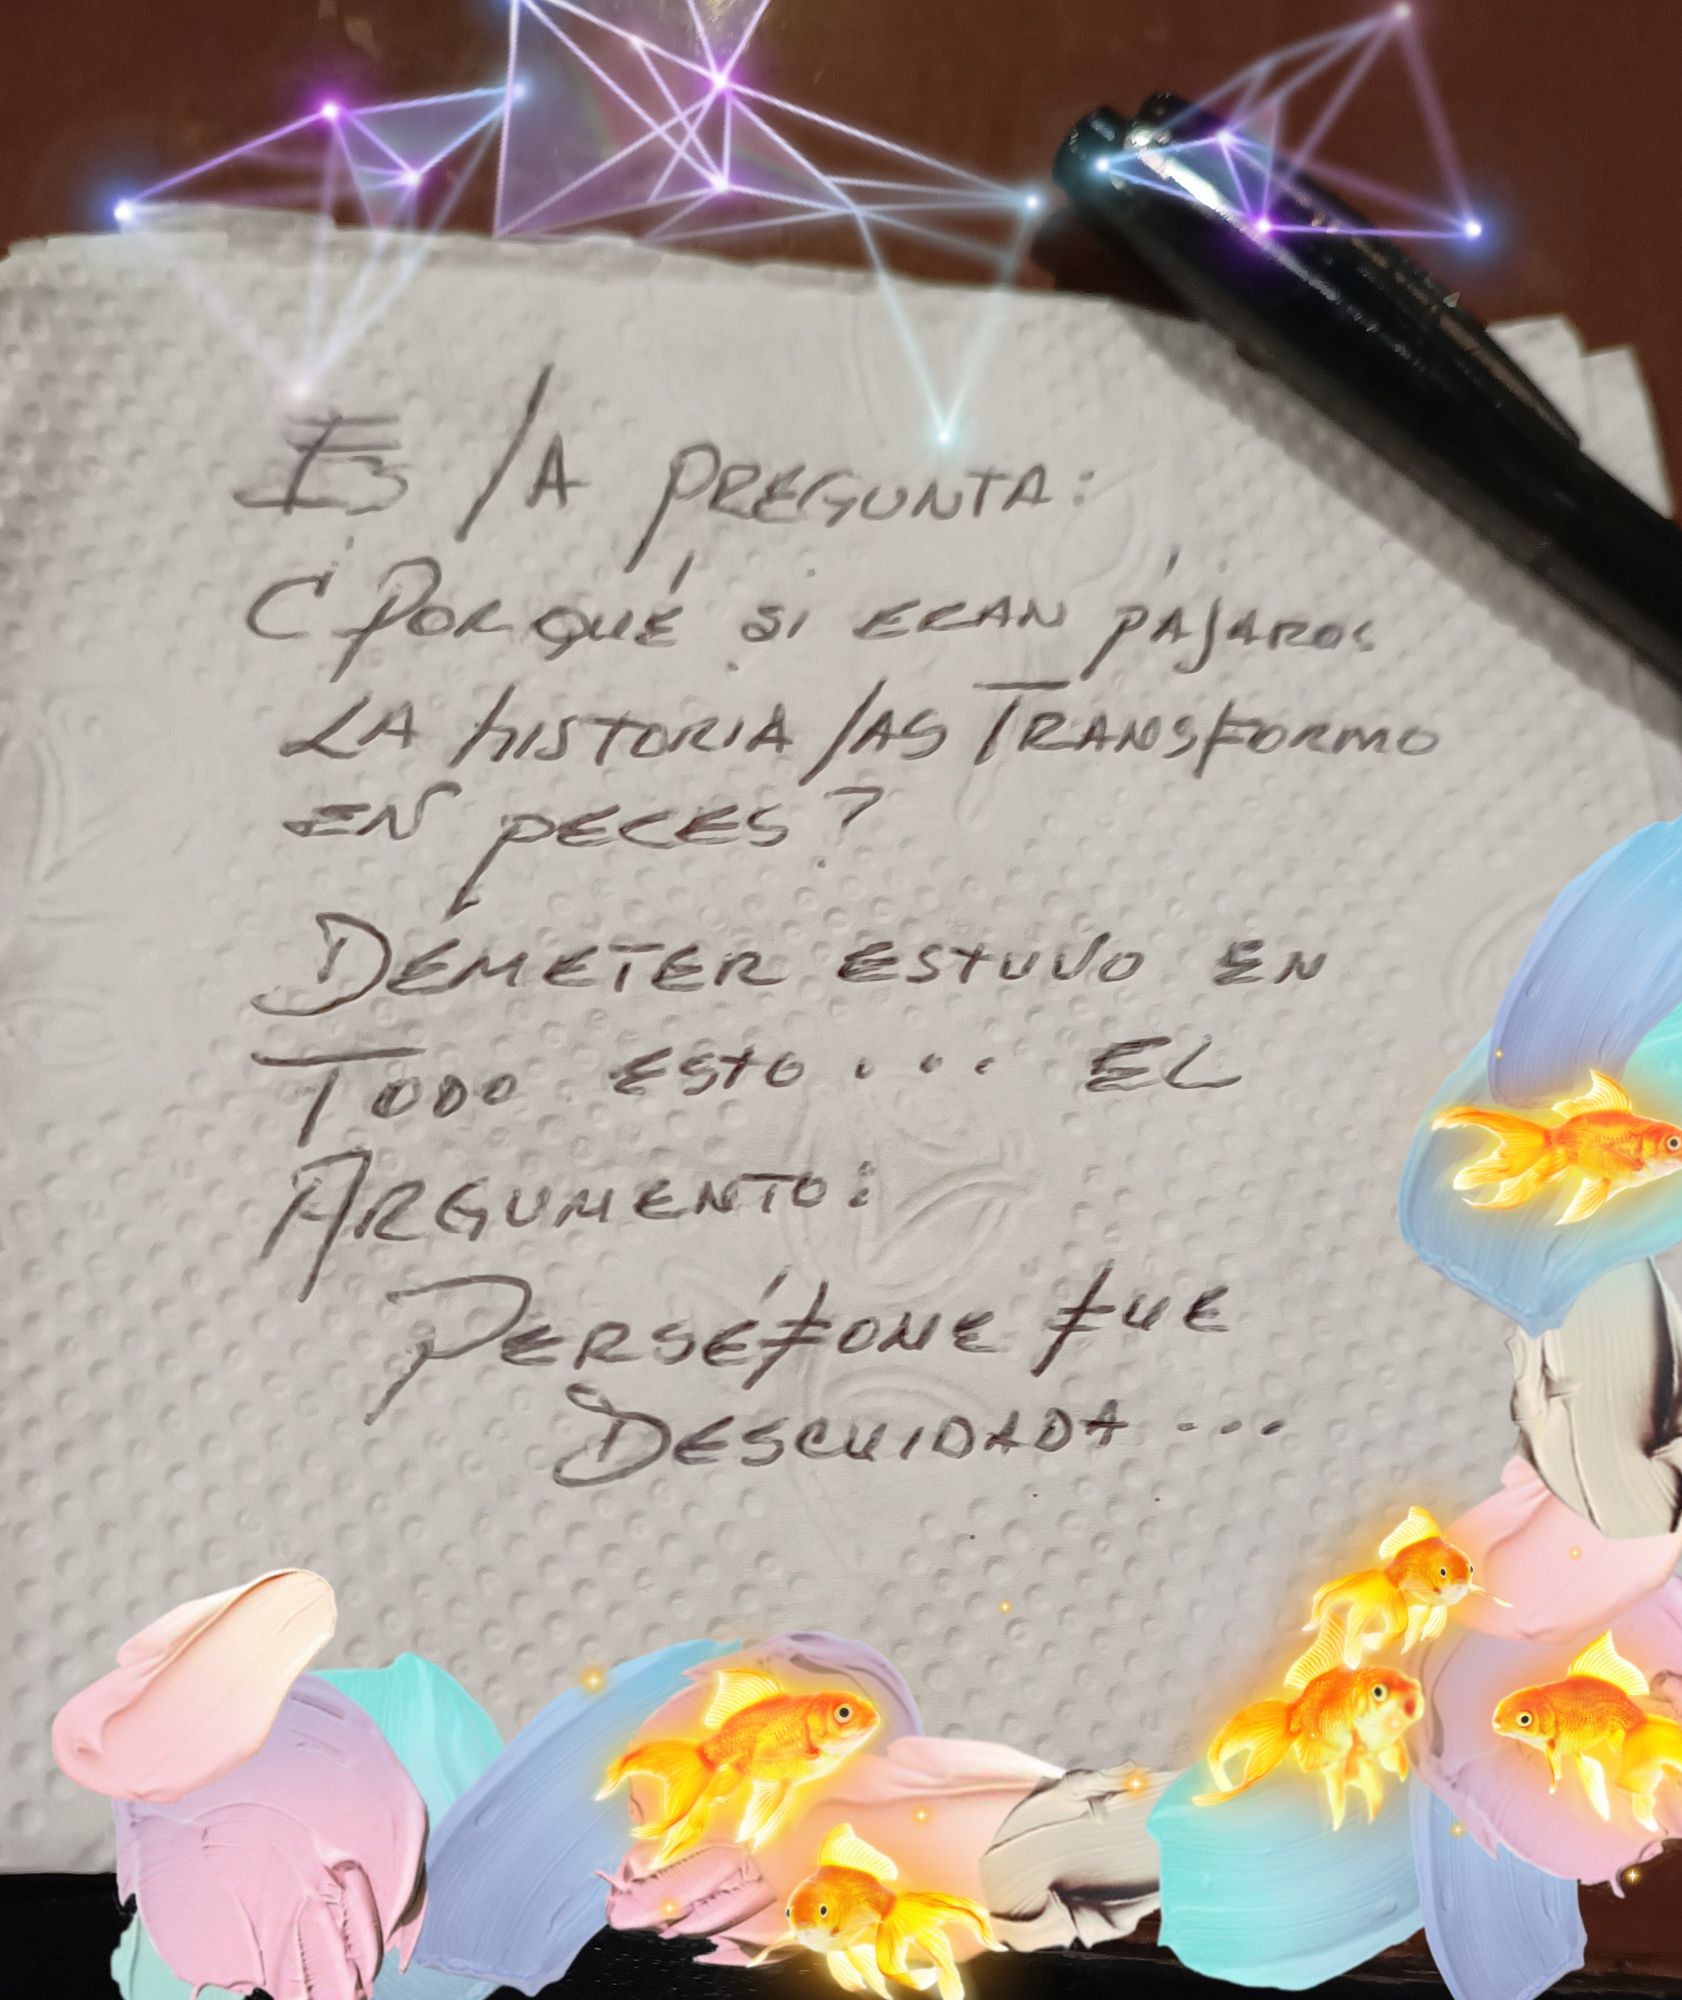 Es la pregunta:
¿Por qué si eran pájaros
la historia las transformo
en peces?
Deméter estuvo en
todo esto... El
Argumento:
Perséfone fue
descuidada...